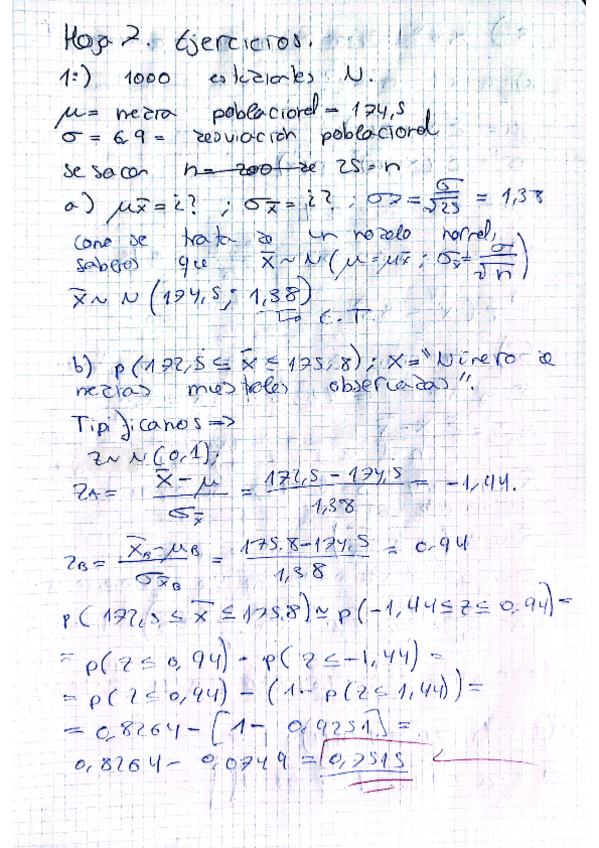 Hoja 2. Ejercicios.
1:) 1000 estudiantes N.
μ = media poblacional = 174,5
σ = 6,9 = desviación poblacional
se sacan n = 200 de 25 = n
a) μx̄ = ¿? ; σx̄ = ¿? ; σx̄ = σ/√25 = 1,38
como se trata de un modelo normal,
sabemos que x̄ ~ N (μ = μx̄ ; σx̄ = σ/√n)
x̄ ~ N (174,5 ; 1,38)
C.T.
b) p(172,5 ≤ x̄ ≤ 175,8) ; X = "Número de
medias muestrales observadas".
Tipificamos =>
z ~ N(0,1);
zA = x̄ - μ / σx̄ = 172,5 - 174,5 / 1,38 = -1,44.
zB = x̄B - μB / σx̄B = 175,8 - 174,5 / 1,38 = 0,94
p(172,5 ≤ x̄ ≤ 175,8) ≃ p(-1,44 ≤ z ≤ 0,94) =
= p(z ≤ 0,94) - p(z ≤ -1,44) =
= p(z ≤ 0,94) - (1 - p(z ≤ 1,44)) =
= 0,8264 - [1 - 0,9251] =
0,8264 - 0,0749 = 0,7515